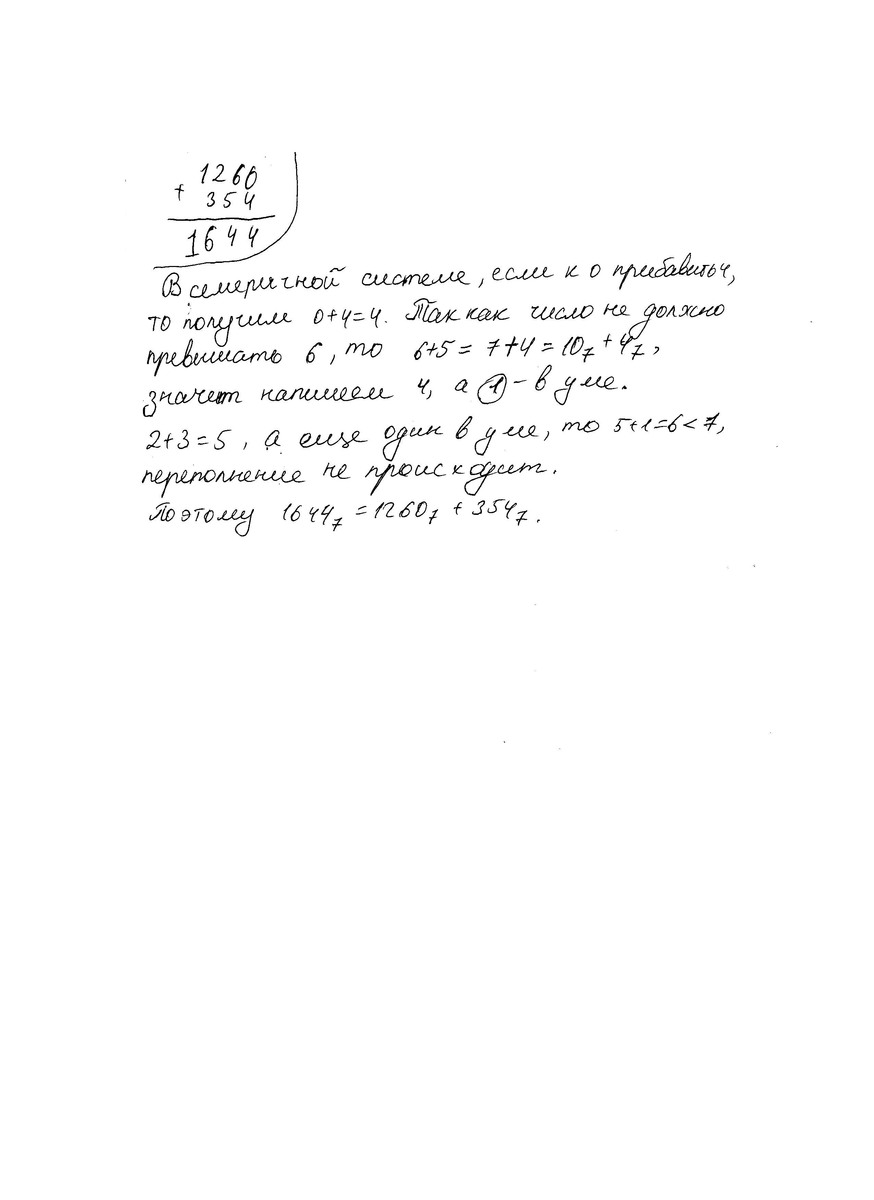 1260
+ 354
1644
В семеричной системе, если к 0 прибавить 4,
то получим 0+4=4. Так как число не должно
превышать 6, то 6+5 = 7+4 = 10₇ + 4₇,
значит напишем 4, а 1 - в уме.
2+3=5, а еще один в уме, то 5+1=6<7,
переполнение не происходит.
Поэтому 1644₇ = 1260₇ + 354₇.